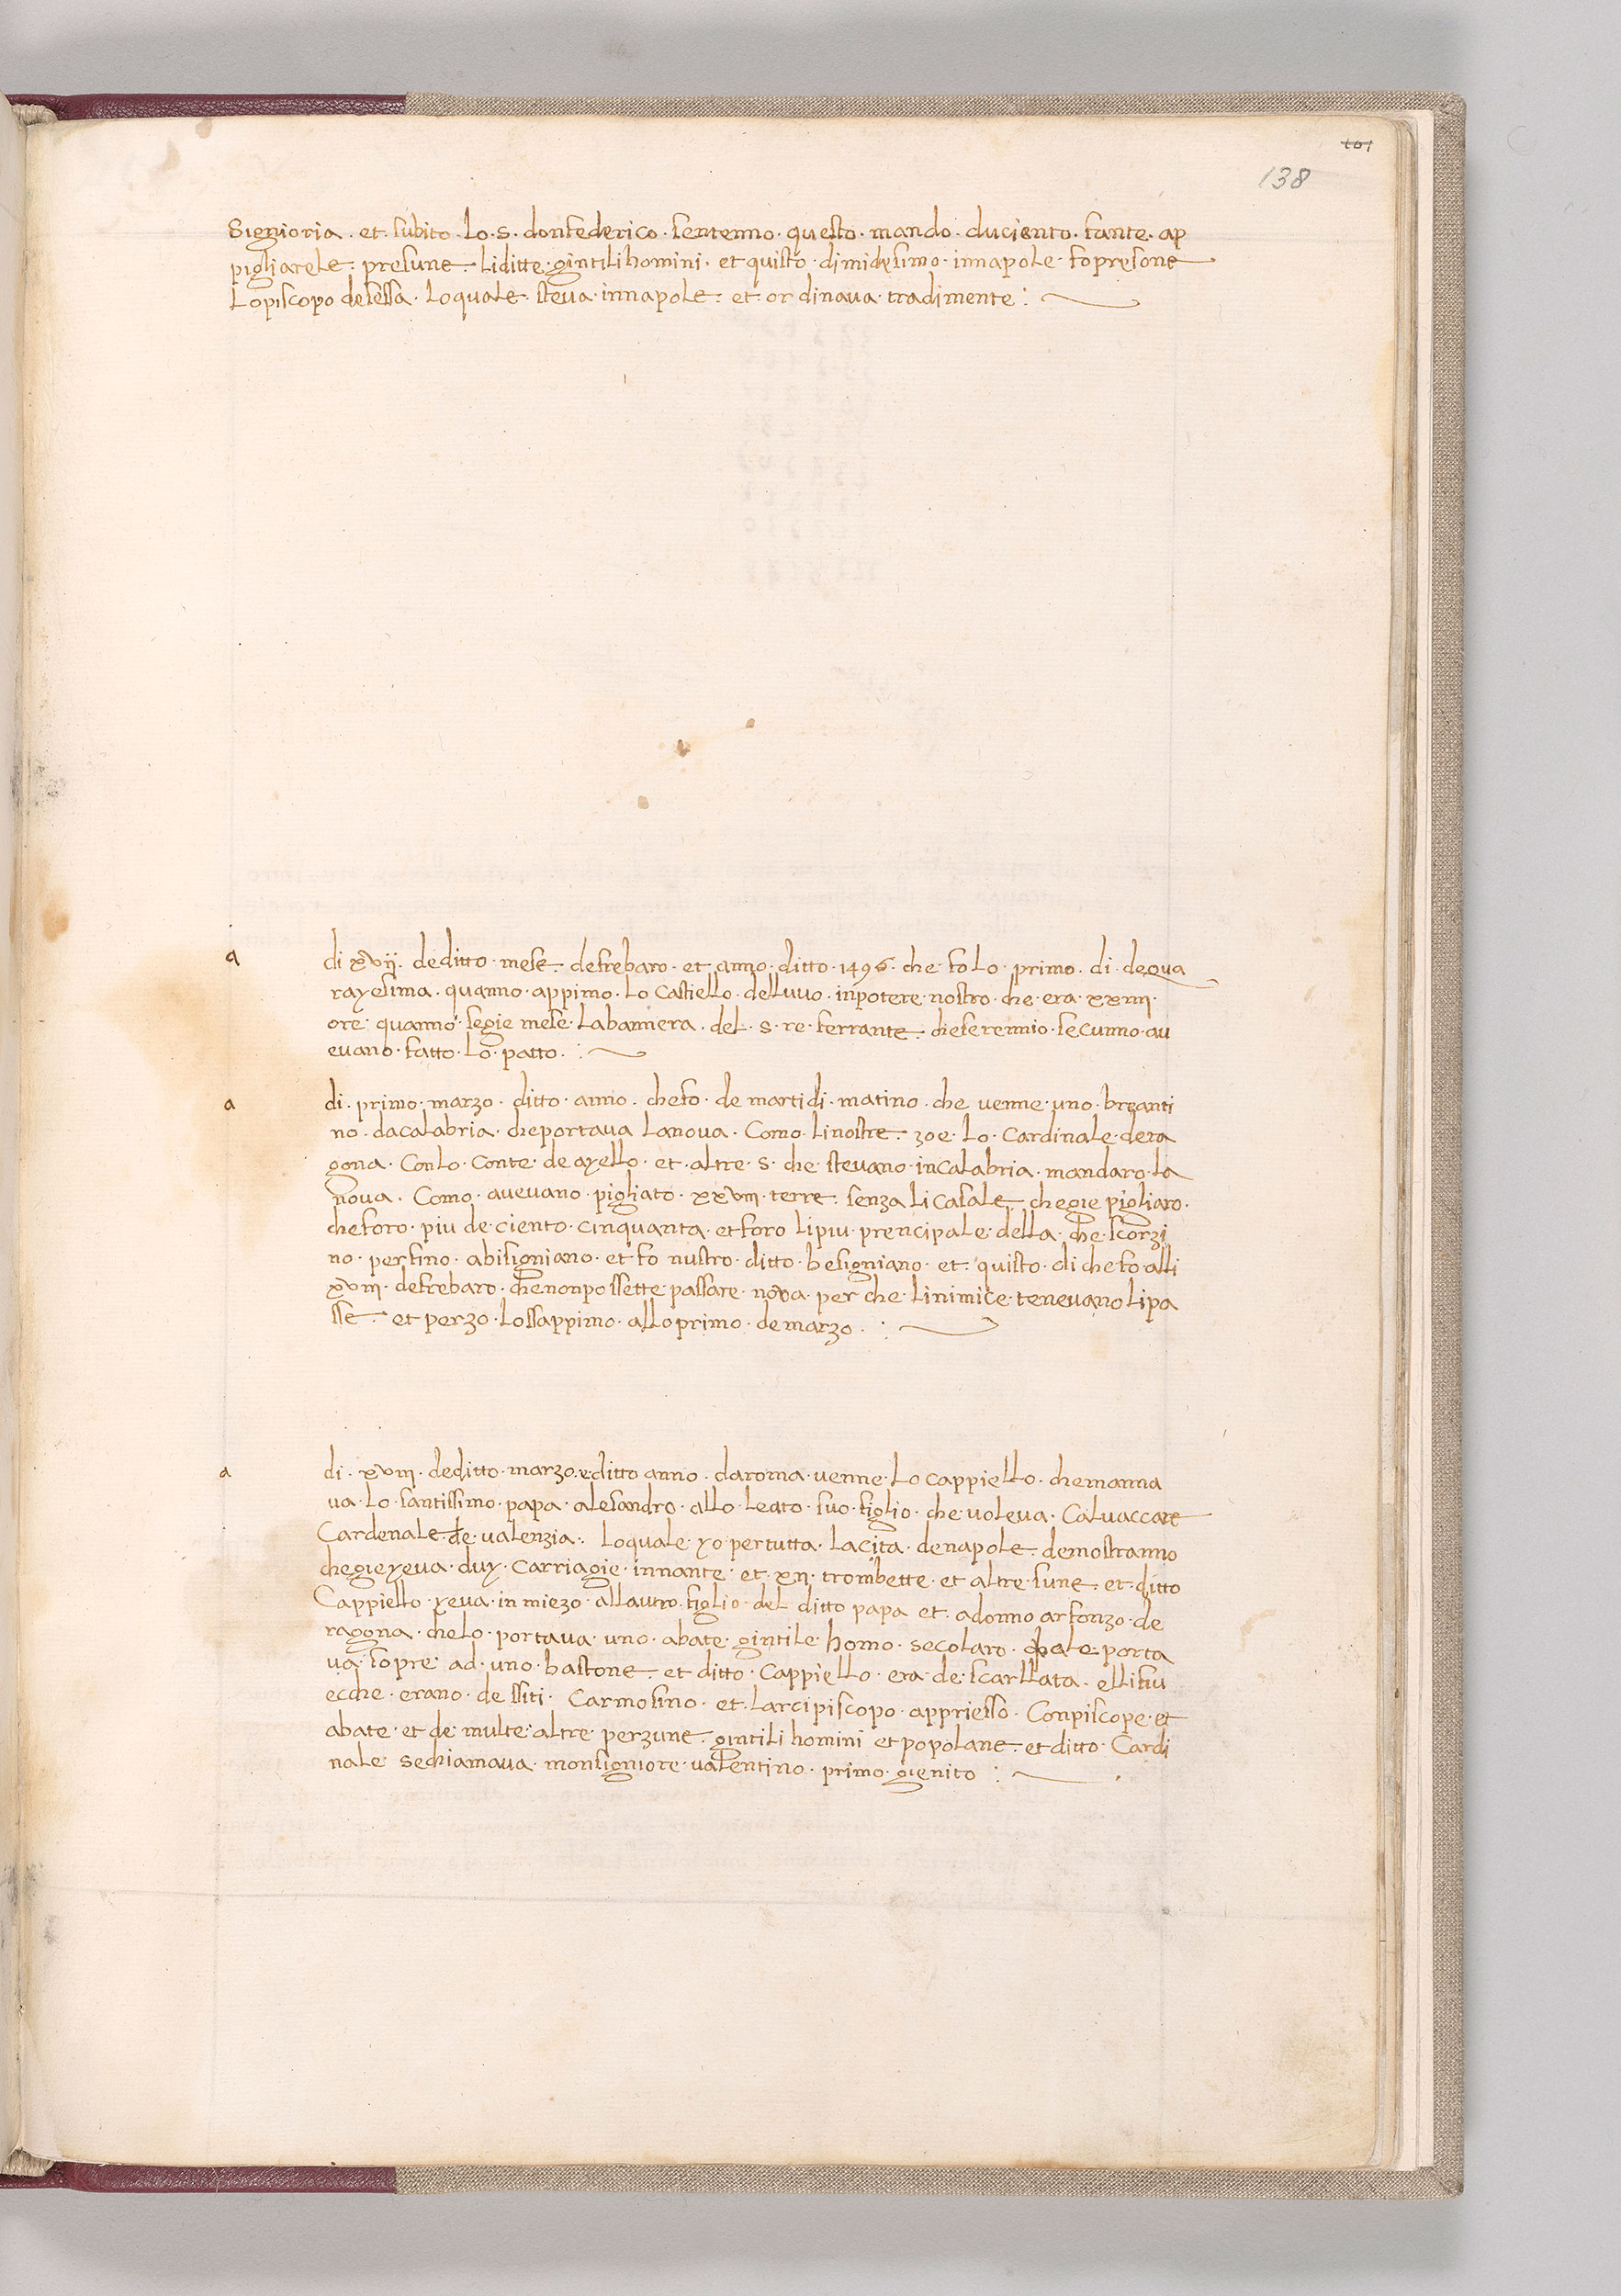 101
138
Signioria . et . subito . lo . s . donfederico . sentenno . questo . mando . duciento . fante . ap
pigliarele . presune . liditte . gintilihomini . et quisto . dimidesimo . innapole . fo presone
Lopiscopo desessa . loquale . steva . innapole . et . ordinava . tradimente :
a di xvii . deditto . mese . defrebaro . et anno . ditto . 1496 . che fo lo . primo . di . dequa
rayesima . quanno . appimo . lo castiello . delluvo . inpotere . nostro . che . era . xxiiii .
ore . quanno . segie mese . labannera . del . s . re . ferrante . che ferennio . secunno . av
evano . fatto . lo . patto . :
a di . primo . marzo . ditto . anno . chefo . de martidi . matino . che venne . uno . breganti
no . dacalabria . cheportava lanova . Como . linostre . zoe . lo . Cardinale . dera
gona . Conlo . Conte . de ayello . et . altre . s . che stevano . incalabria . mandaro . la
nova . Como . avevano . pigliato . xxviii . terre . senza li casale . chegie pigliaro .
cheforo . piu de . ciento . cinquanta . et foro lipiu . prencipale . della . che . scorzi
no . perfino . abisigniano . et fo nustro . ditto . besigniano . et . quisto . di che fo alli
xviii . defrebaro . chenonpossette . passare . nova . per che . linimice . tenevano lipa
sse . et perzo . lossappimo . allo primo . de marzo . :
a di . xviii . deditto . marzo . e ditto anno . daroma . venne . lo cappiello . chemanna
va . lo . santissimo . papa . alesandro . allo . leato . suo . figlio . che . voleva . Calvaccare
Cardenale . de . valenzia . loquale . yo . pertutta . lacita . denapole . demostranno
chegieyeva . duy . carriagie . innante . et . xii . trombette . et altre . sune . et . ditto
Cappiello . yeva . in miezo . allautro . figlio . del ditto papa et . adonno arfonzo . de
ragona . chelo . portava . uno . abate . gintile homo . secolaro . chale . porta
va . sopre . ad . uno . bastone . et ditto . Cappiello . era . de . scarllata . ellifiu
ecche . erano . de ssiti . Carmosino . et . larcipiscopo . appriesso . Conpiscope . et
abate . et de . multe . altre . perzune . gintili homini et popolane . et ditto . Cardi
nale . sechiamava . monsigniore . valentino . primo . gienito :